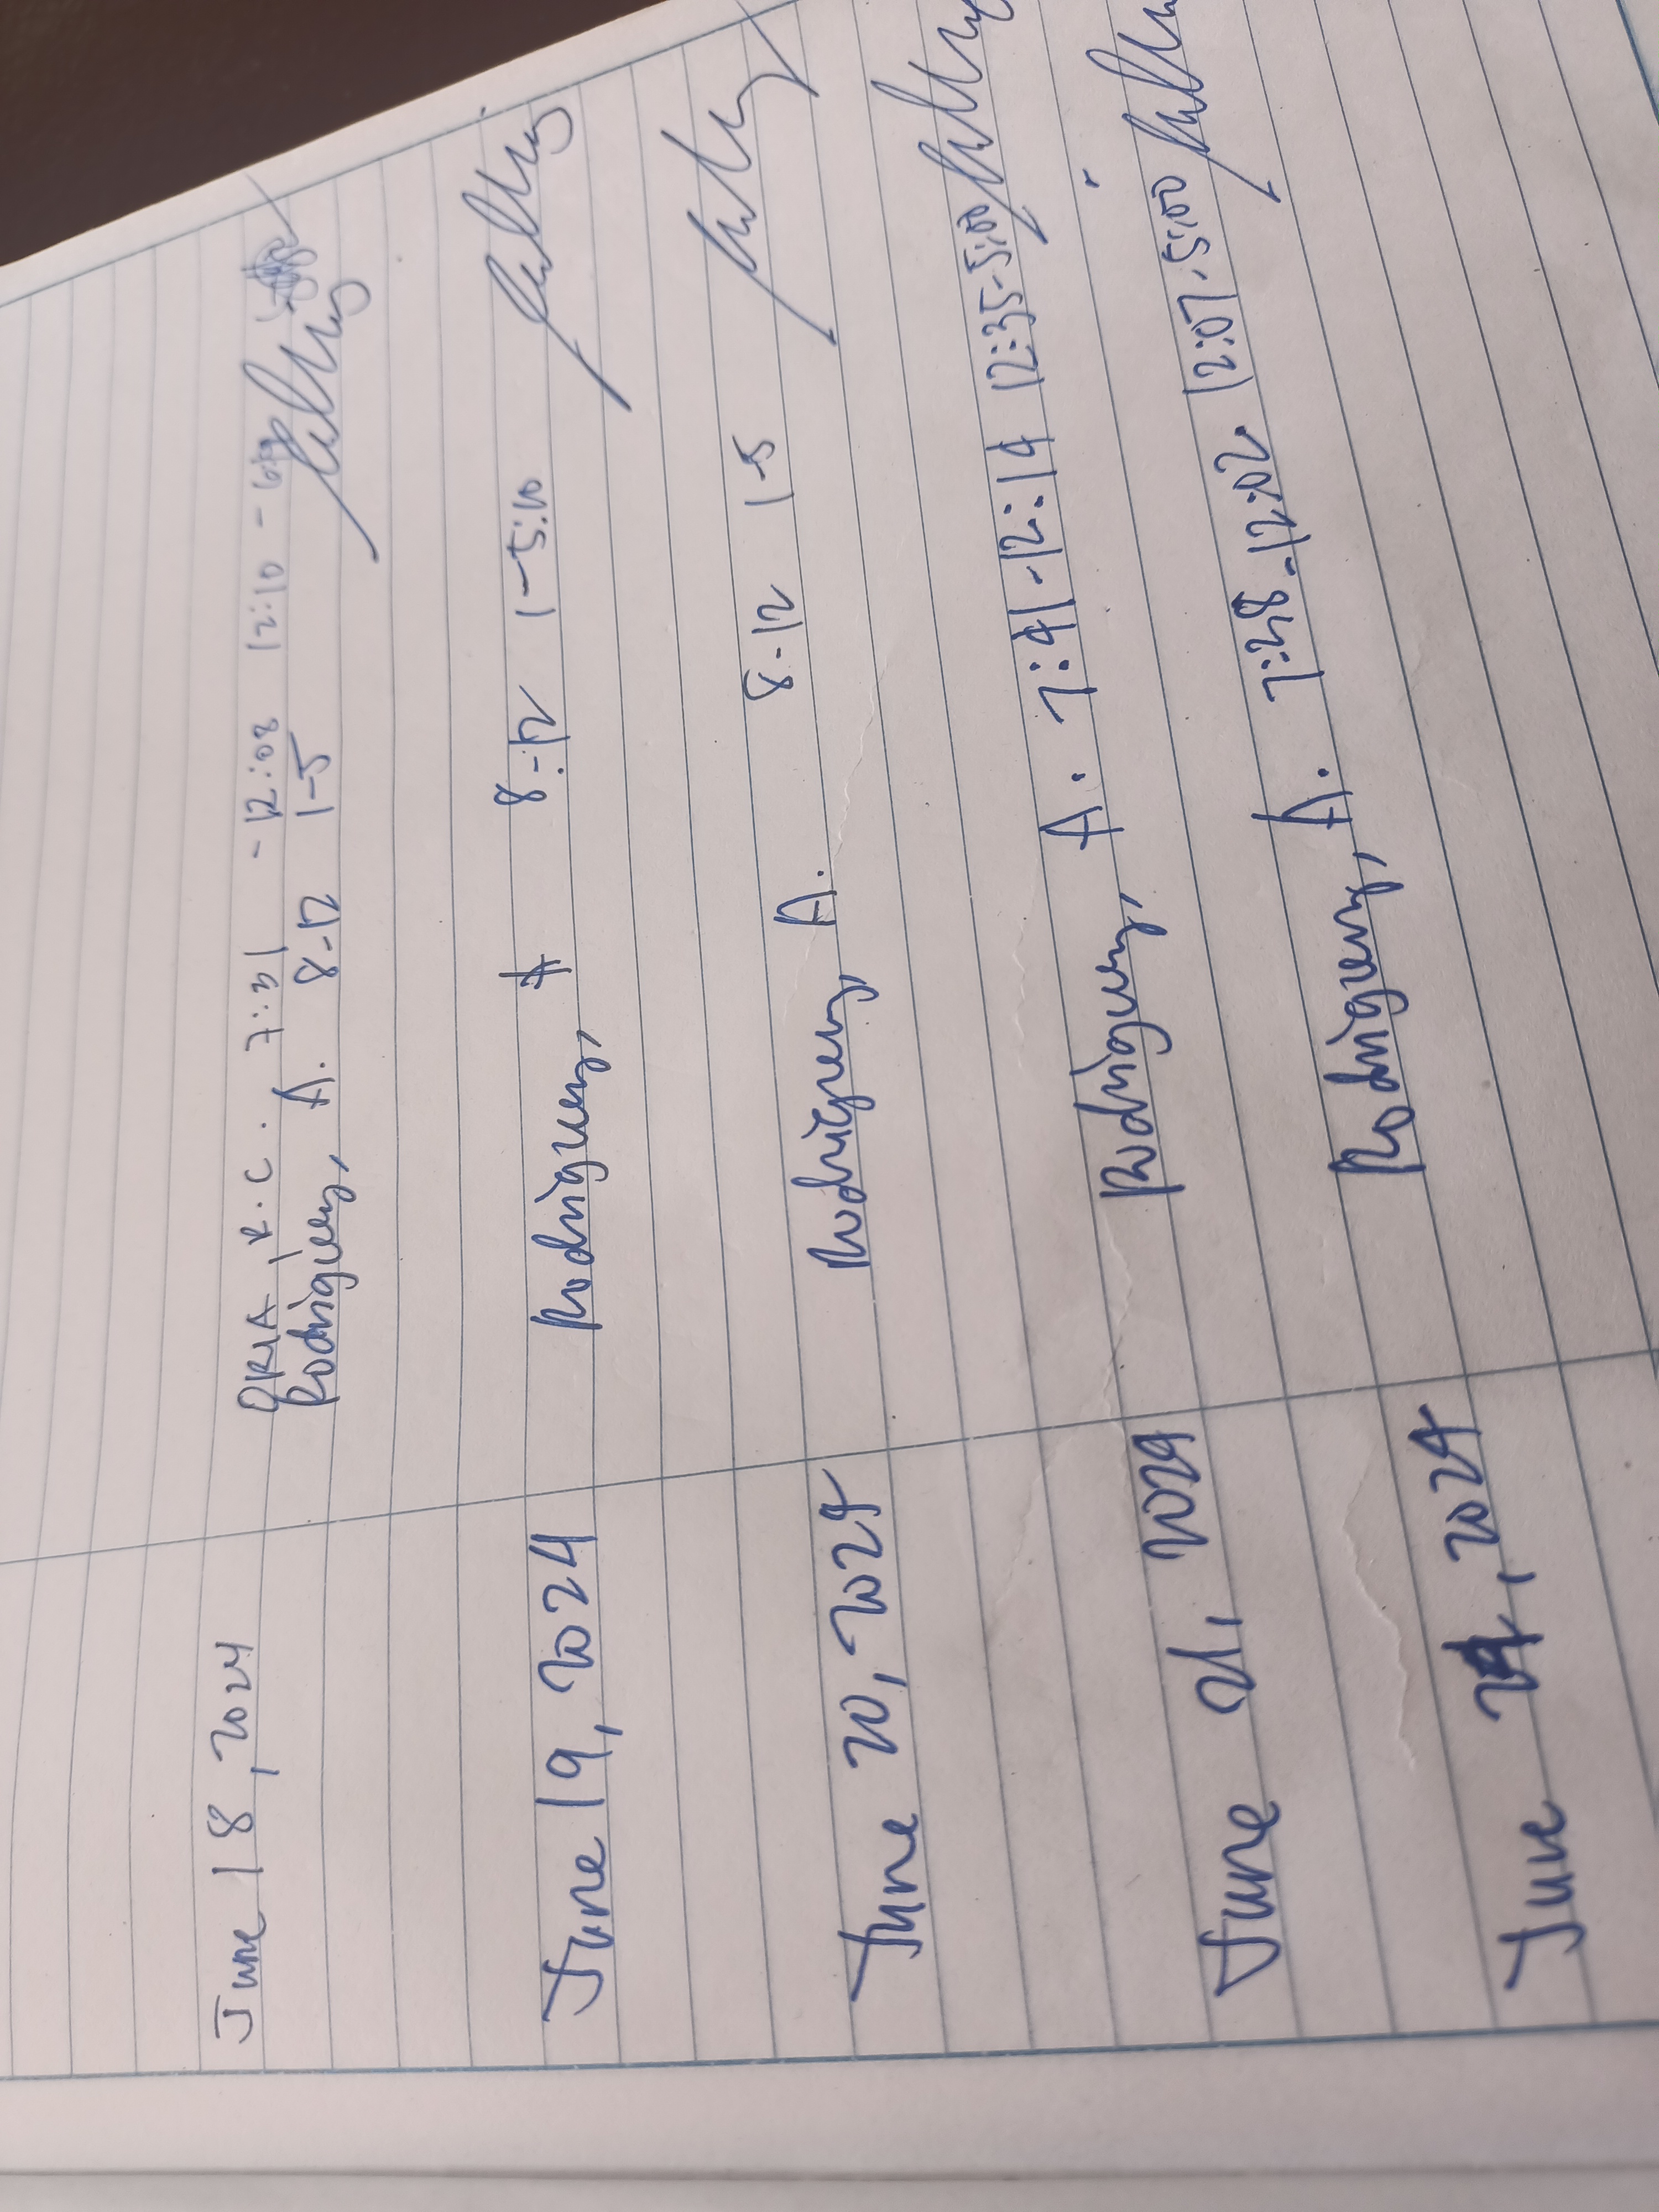 June 18, 2024 ORIA, K.C. 7:31 - 12:08 12:10 -
Rodriguez, A. 8-12 1-5
June 19, 2024 Rodriguez, A 8-12 1-5:10
June 20, 2024 Rodriguez, A. 8-12 1-5
June 21, 2024 Rodriguez, A. 7:41-12:14 12:35-5:00
June 24, 2024 Rodriguez, A. 7:48-12:02. 12:07-5:00